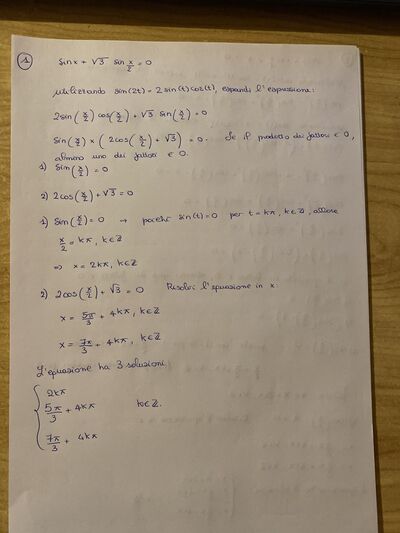 1
sin x + √3 sin x/2 = 0
utilizzando sin(2t) = 2 sin(t) cos(t), espandi l'espressione:
2 sin(x/2) cos(x/2) + √3 sin(x/2) = 0
sin(x/2) × (2cos(x/2) + √3) = 0. Se il prodotto dei fattori è 0,
almeno uno dei fattori è 0.
1) sin(x/2) = 0
2) 2cos(x/2) + √3 = 0
1) sin(x/2) = 0 → poiché sin(t) = 0 per t = kπ, k∈ℤ, allora
x/2 = kπ, k∈ℤ
⇒ x = 2kπ, k∈ℤ
2) 2cos(x/2) + √3 = 0 Risolvi l'equazione in x:
x = 5π/3 + 4kπ, k∈ℤ
x = 7π/3 + 4kπ, k∈ℤ
L'equazione ha 3 soluzioni
{ 2kπ
5π/3 + 4kπ k∈ℤ.
7π/3 + 4kπ